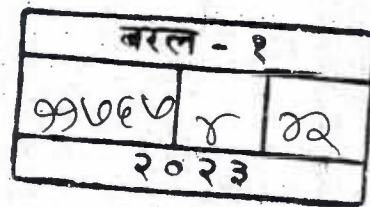 बरल - १
११७६७ ४ ४२
२०२३